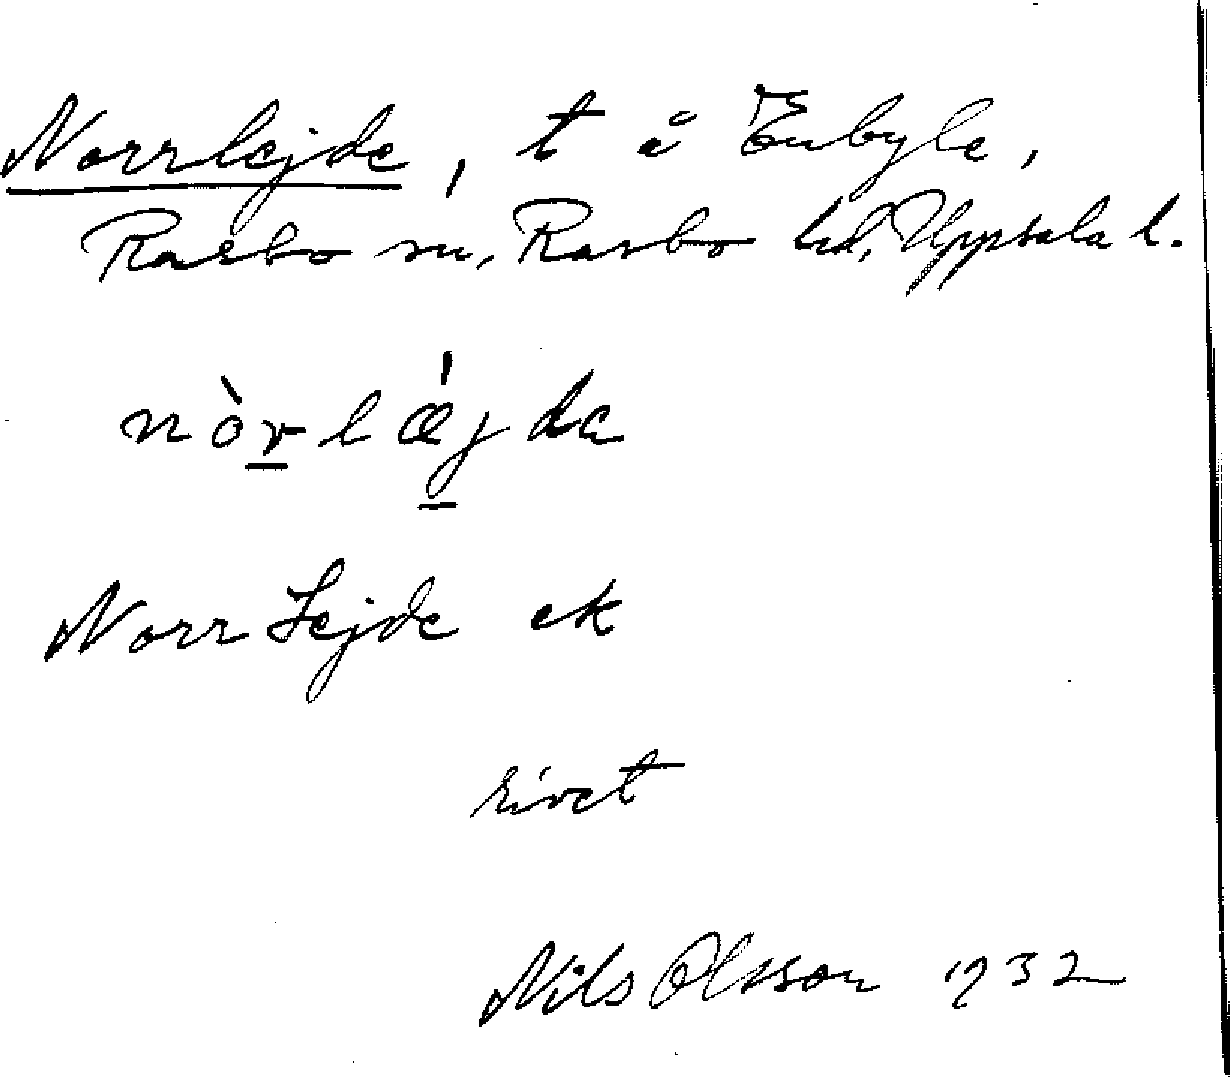 Norrlejde, t å Enbyle,
Rasbo sn, Rasbo hd, Uppsala l.
nòrlǽjda
Norr Lejde ek
rivet
Nils Olsson 1932